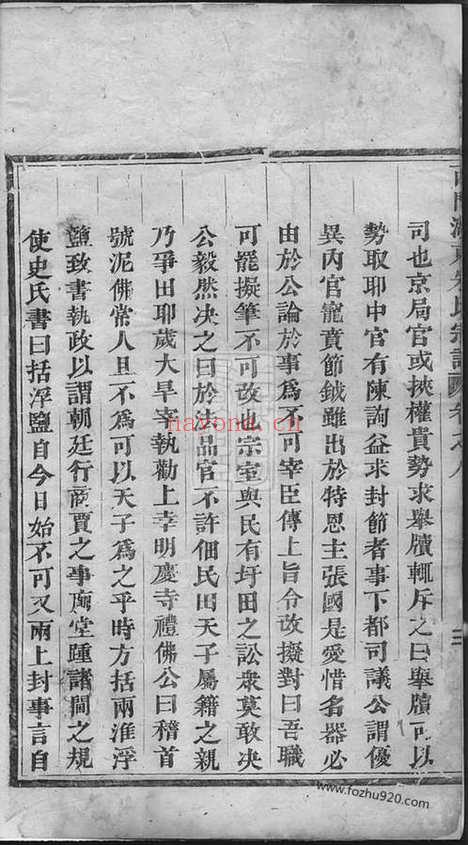 司也京局官或挾權貴勢求舉牘輒斥之曰舉牘可以
勢取耶中官有陳詢益求封節者事下都司議公謂優
異內官寵賁節鉞雖出於特恩主張國是愛惜名器必
由於公論於事為不可宰臣傳上旨令改擬對曰吾職
可罷擬筆不可改也宗室與民有圩田之訟衆莫敢决
公毅然决之曰於法品官不許佃民田天子屬籍之親
乃爭田耶歲大旱宰執勸上幸明慶寺禮佛公曰稽首
號泥佛常人且不為可以天子為之乎時方括兩淮浮
鹽致書執政以謂朝廷行商賈之事廟堂踵諸閫之規
使史氏書曰括浮鹽自今日始不可又兩上封事言自
氏宗譜
卷之八
navone.cn
www.fozhu920.com